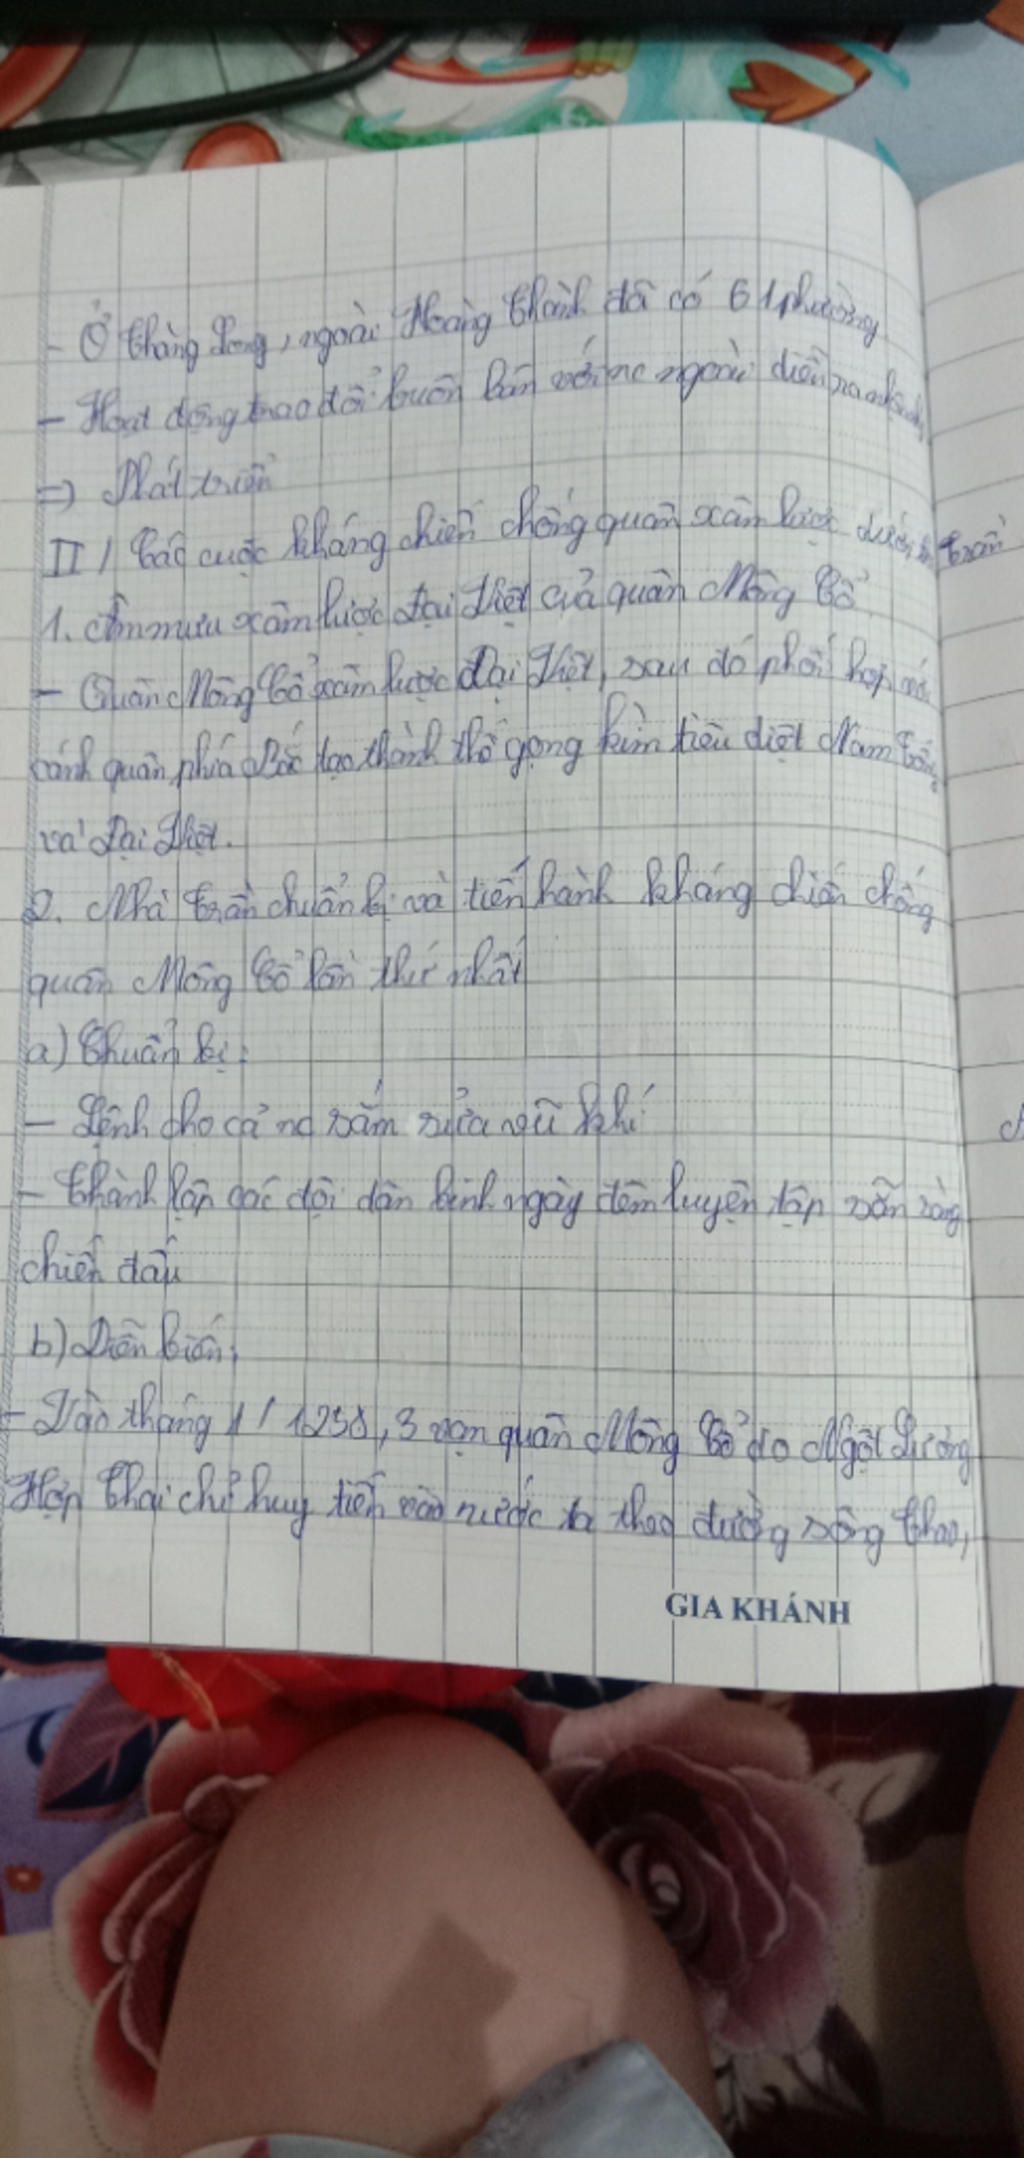 - Ở Thăng Long, ngoài Hoàng thành đã có 61 phường
- Hoạt động trao đổi buôn bán với nc ngoài diễn ra
=) Phát triển
II / Các cuộc kháng chiến chống quân xâm lược dưới Trần
1. Âm mưu xâm lược Đại Việt của quân Mông Cổ
- Quân Mông Cổ xâm lược Đại Việt, sau đó phối hợp với
cánh quân phía Bắc tạo thành thế gọng kìm tiêu diệt Nam Tống
và Đại Việt.
2. Nhà Trần chuẩn bị và tiến hành kháng chiến chống
quân Mông Cổ lần thứ nhất
a) Chuẩn bị:
- Lệnh cho cả nc sắm sửa vũ khí
- Thành lập các đội dân binh ngày đêm luyện tập sẵn sàng
chiến đấu
b) Diễn biến:
- Vào tháng 1 / 1258, 3 vạn quân Mông Cổ do Ngột Lương
Hợp Thai chỉ huy tiến vào nước ta theo đường sông Thao,
GIA KHÁNH